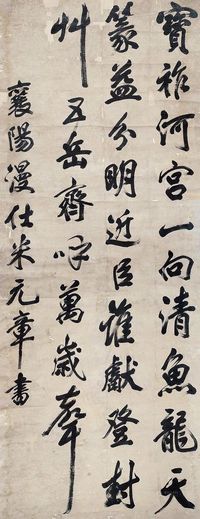 寶祚河宮一向清魚龍天
篆益分明近臣誰獻登封
艸五岳齊呼萬歲聲
襄陽漫仕米元章書